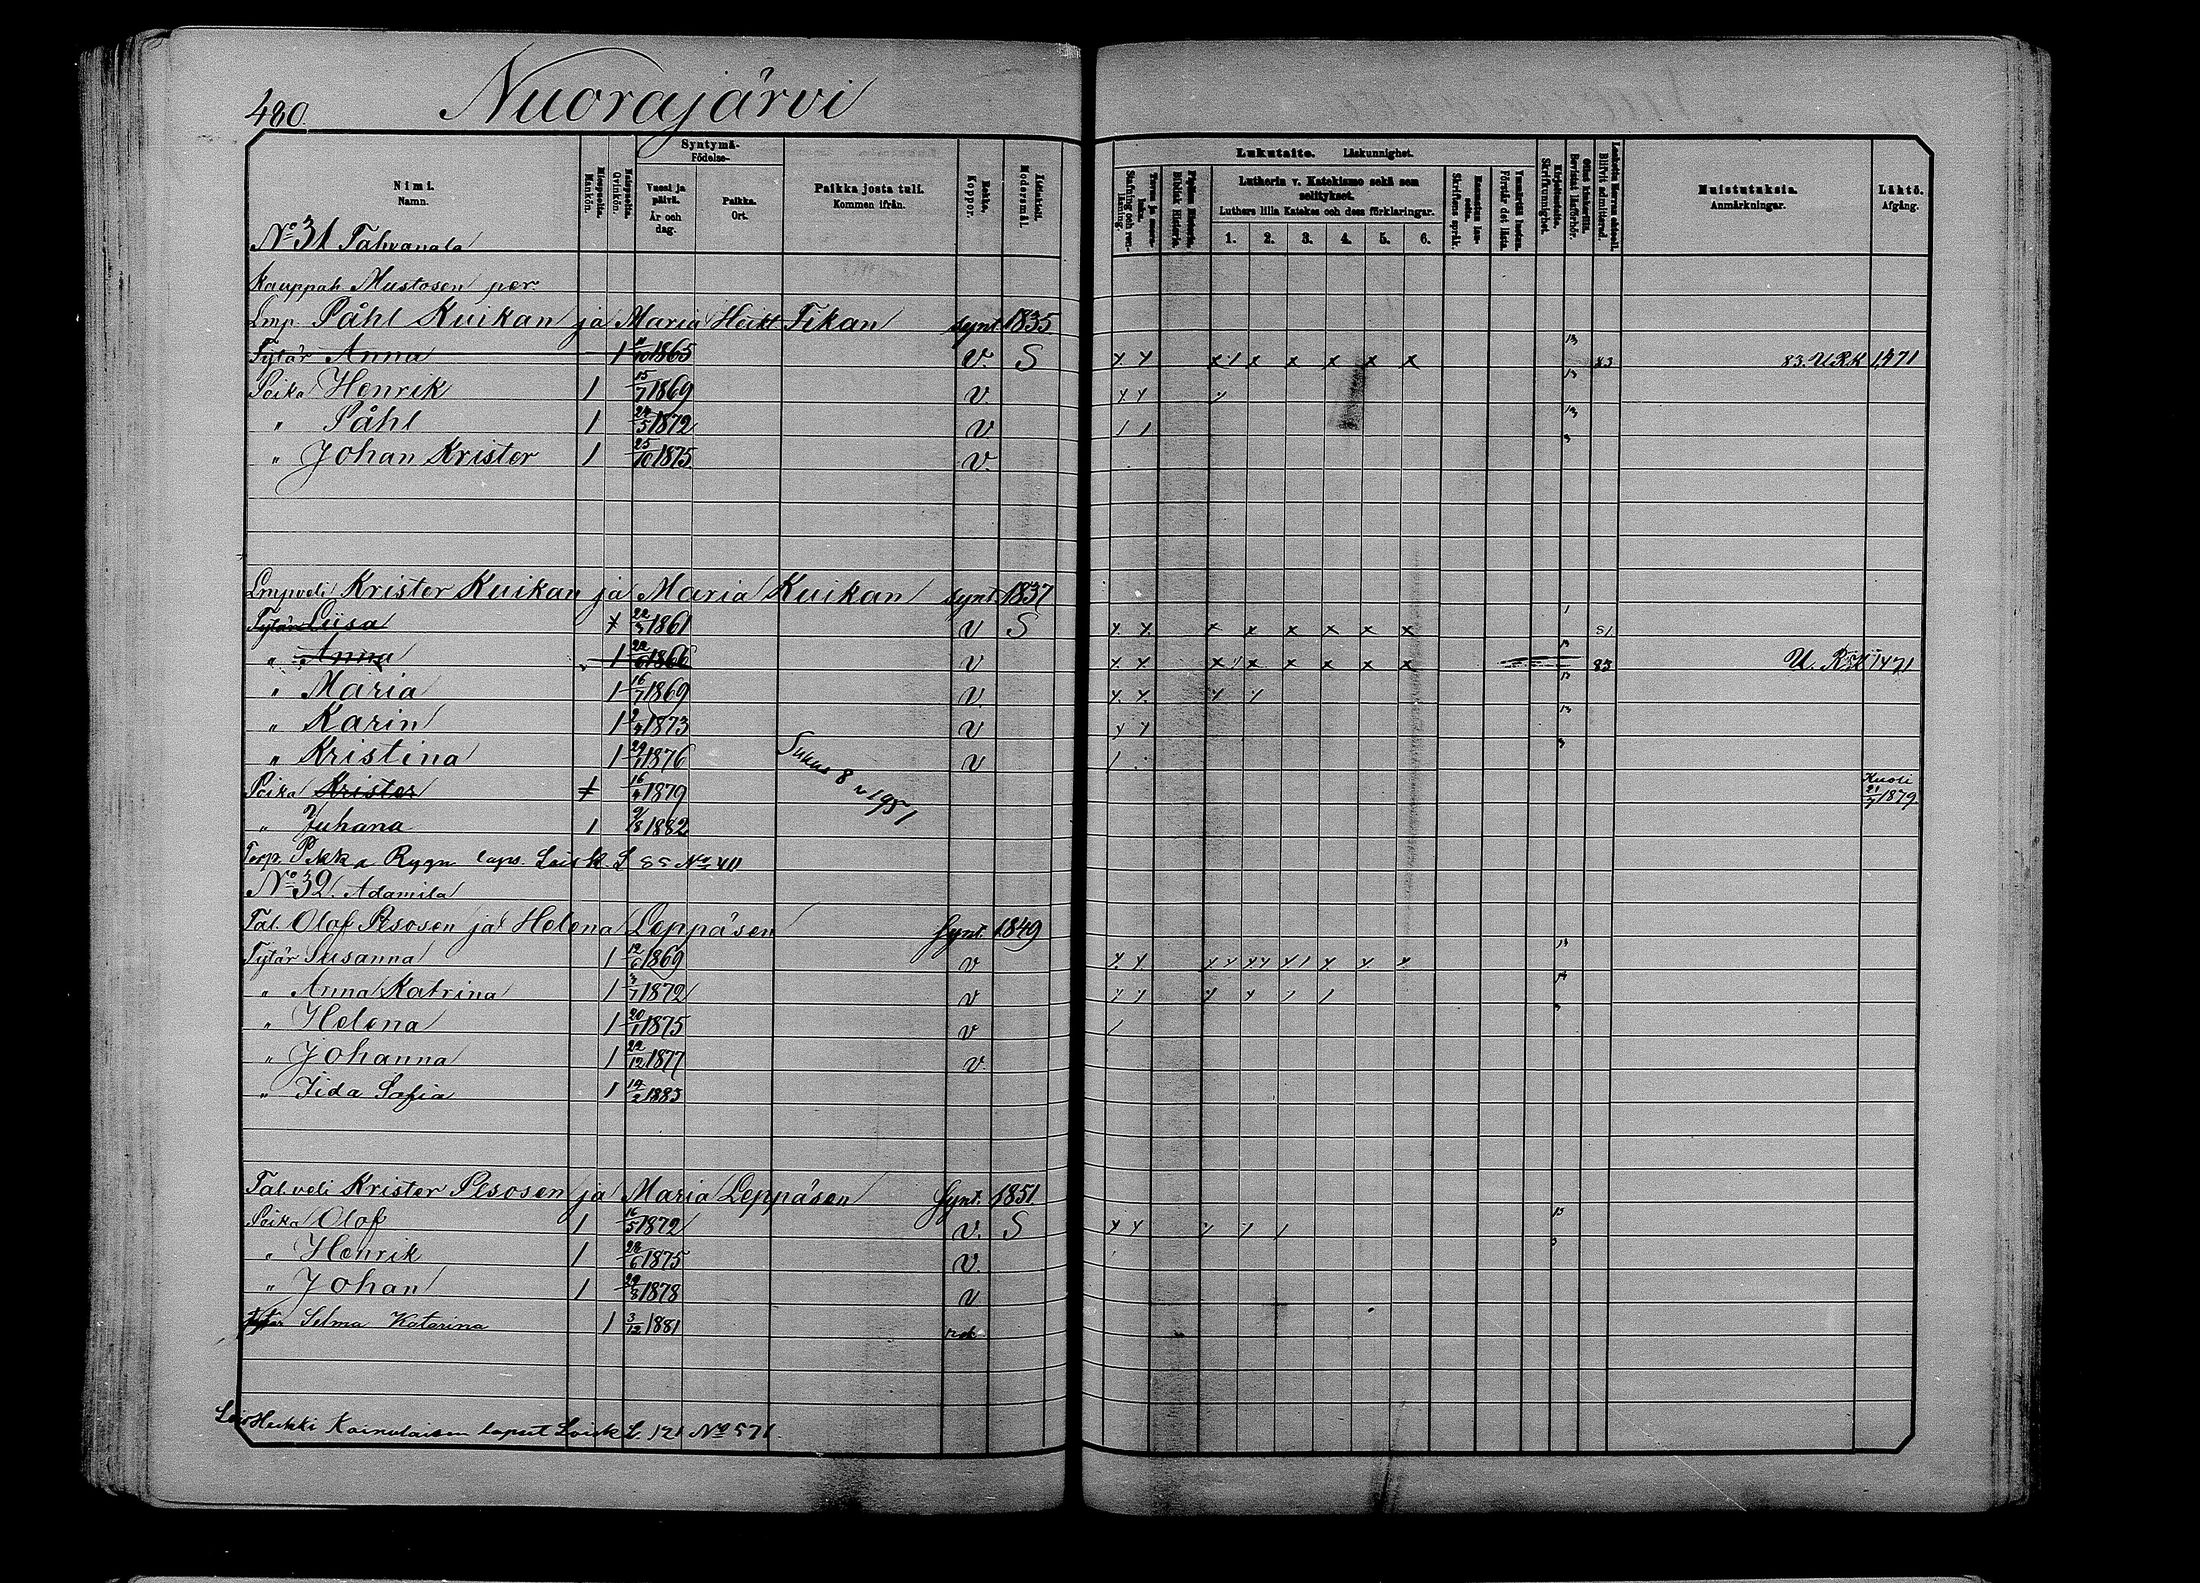 480.
Nuorajärvi
Nimi. Namn.
Miespuolia. Mankön.
Vaimopuolia. Qvinkön.
Syntymä- Födelse-
Vuosi ja päivä. År och dag.
Paikka. Ort.
Paikka josta tuli. Kommen ifrån.
Rokko. Koppor.
Äidinkieli. Modersmål.
Lukutaito. Läskunnighet.
Lutherin v. Katekismo sekä sen selitykset.
Luthers lilla Katekes och dess förklaringar.
1. 2. 3. 4. 5. 6.
Muistutuksia. Anmärkningar.
Lähtö. Afgång.
No 31 Tahvanala
Kauppah Mustosen per.
Lmp. Påhl Kuikan ja Maria Heikt Tikan synt. 1835
Tytär Anna 1 11/10 1865 V. S 83 83. URK 1471
Poika Henrik 1 15/7 1869 V.
" Påhl 1 24/5 1872 V
" Johan Krister 1 25/10 1875 V.
Lmpveli Krister Kuikan ja Maria Kuikan synt. 1837
Tytär Liisa 22/3 1861 V S 81
" Anna 1 22/6 1866 V 83 U. RK 1471
" Maria 1 16/7 1869 V.
" Karin 1 1873 V
" Kristina 1 1876 V
Poika Krister 16/4 1879 Kuoli 21/7 1879
" Juhana 1 9/8 1882
Torp. Pekka Rygn laps. Loisk. L 85 No 411
No 32. Adamila
Tal. Olof Pesosen ja Helena Leppäsen Synt. 1849
Tytär Susanna 1 12/6 1869 V
" Anna Katrina 1 3/7 1872 V
" Helena 1 20/1 1875 V
" Johanna 1 22/12 1877 V
" Iida Sofia 1 14/2 1883
Tal. veli Krister Pesosen ja Maria Leppäsen Synt. 1851
Poika Olof 1 16/5 1872 V. S
" Henrik 1 28/6 1875 V.
" Johan 1 29/8 1878 V
Tytär Selma Katarina 1 3/12 1881 rok
Lois Heikki Kainulaisen lapset Loisk L. 121 No 571.